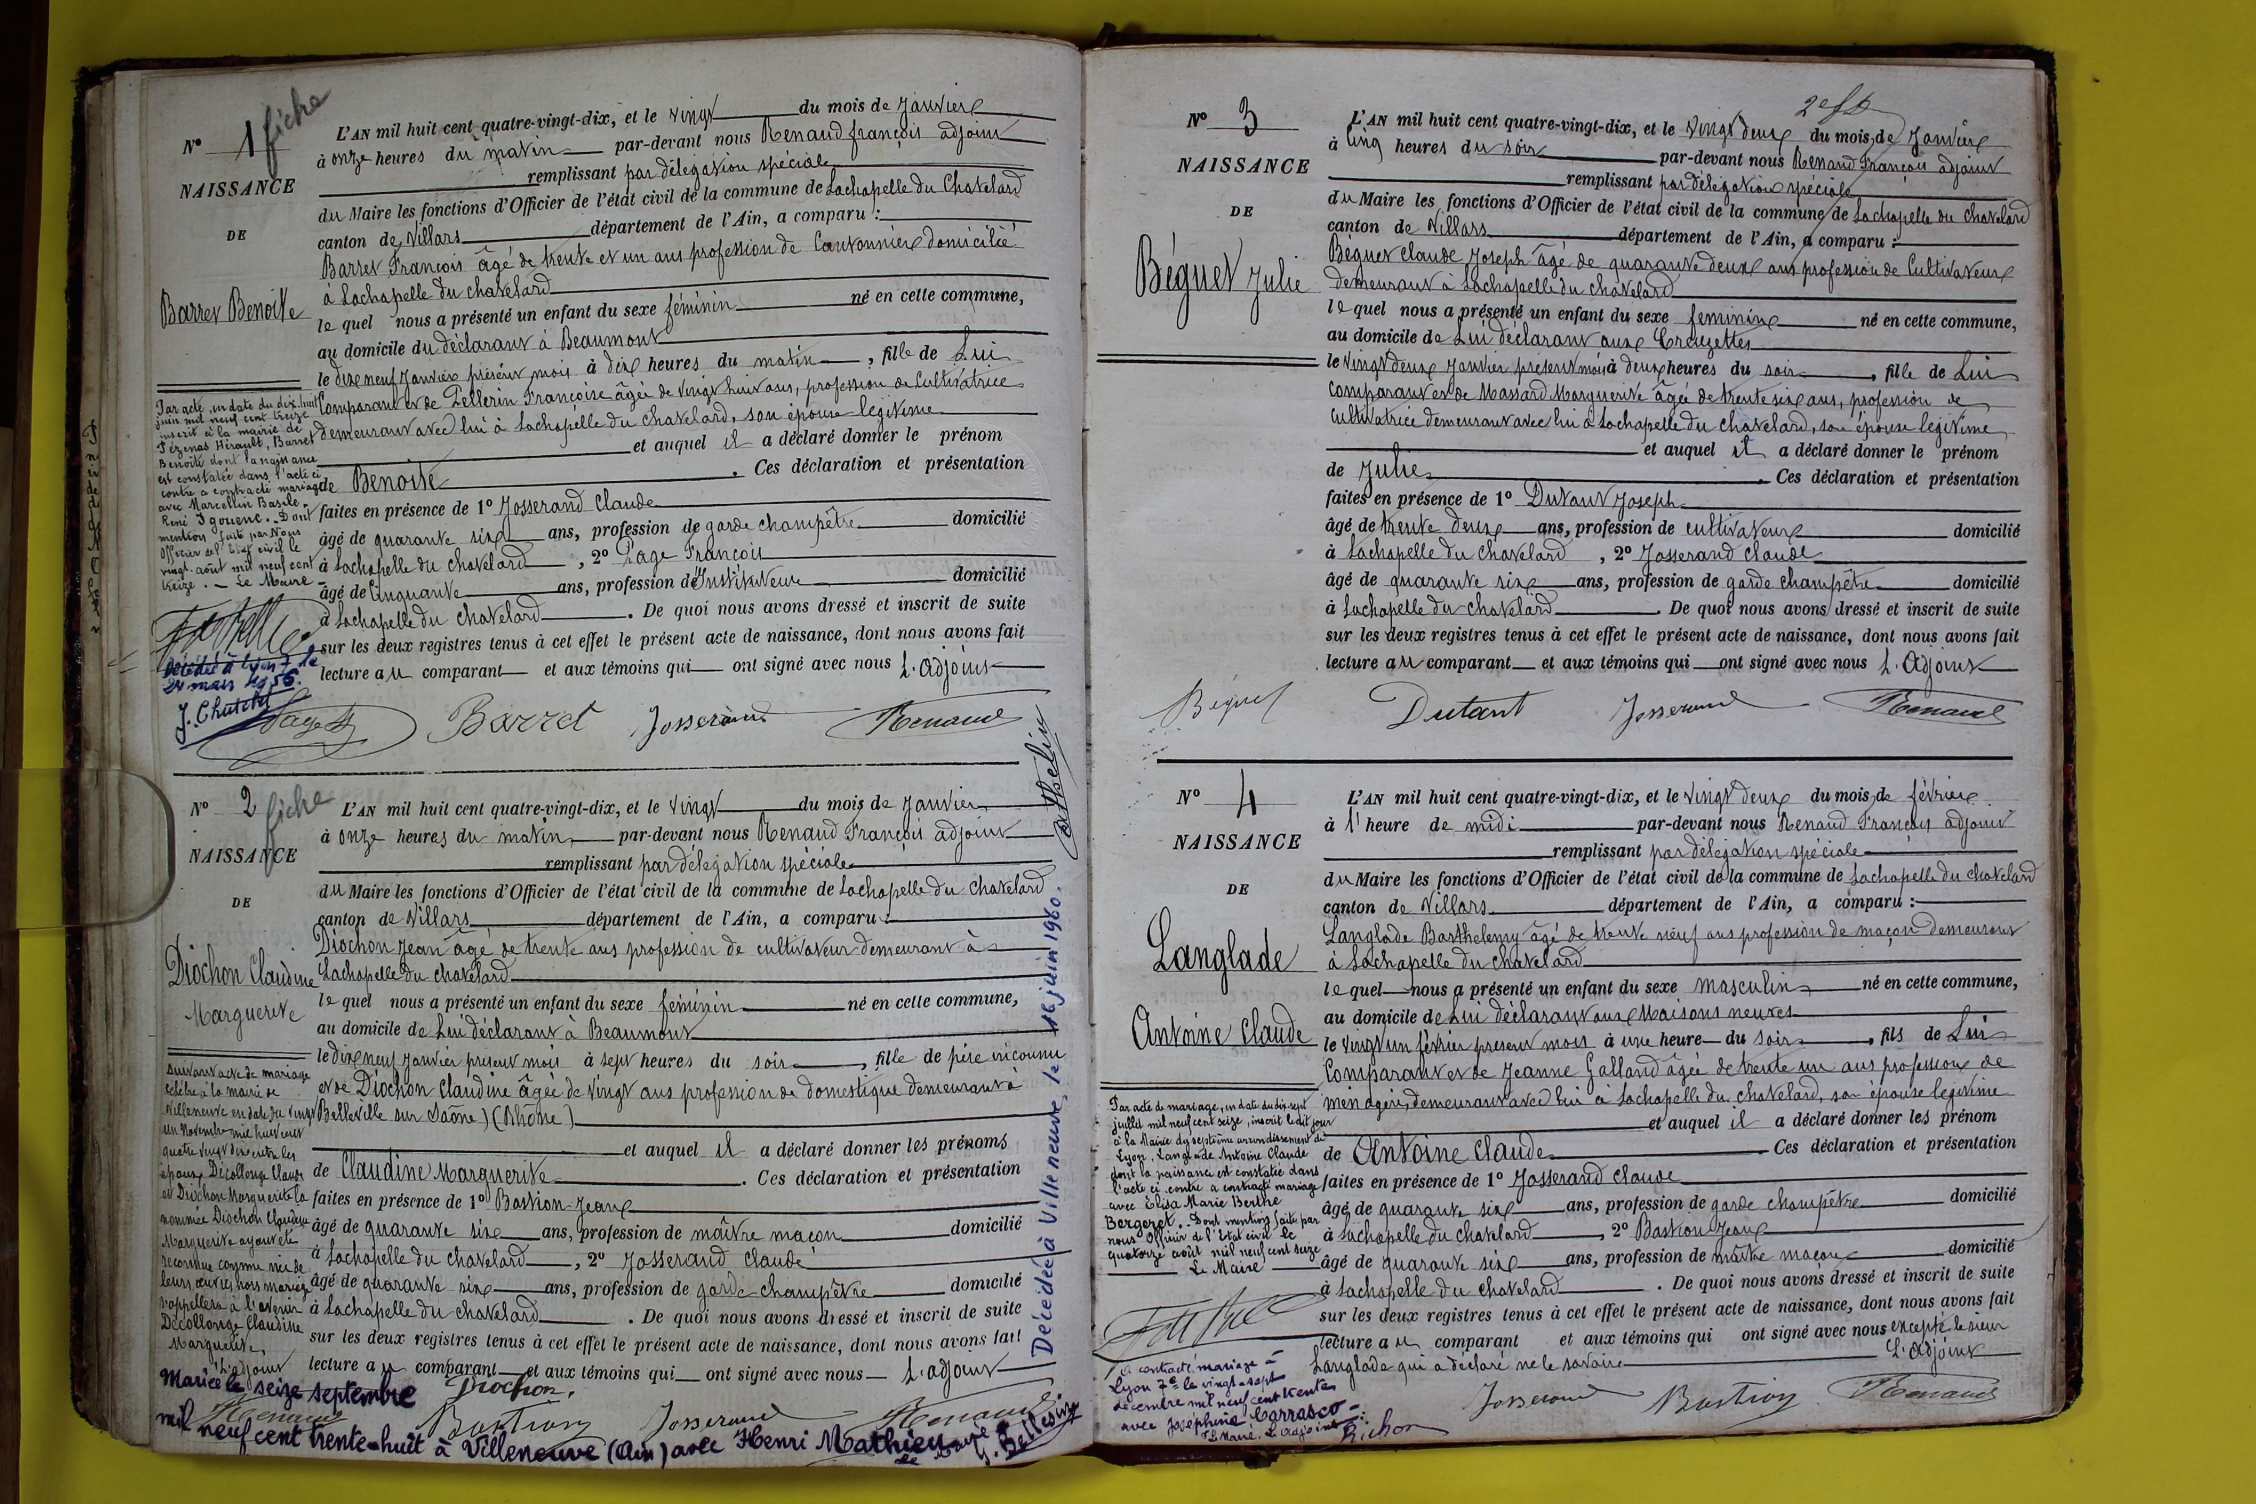 Nº 1 fiche
NAISSANCE
DE
Barret Benoite
L'AN mil huit cent quatre-vingt-dix, et le vingt du mois de Janvier
à onze heures du matin par-devant nous Renaud françois adjoint
remplissant par délégation spéciale
du Maire les fonctions d'Officier de l'état civil de la commune de Lachapelle du Chatelard
canton de Villars département de l'Ain, a comparu :
Barret François âgé de trente et un ans profession de Cantonnier domicilié
à Lachapelle du chatelard
lequel nous a présenté un enfant du sexe féminin né en cette commune,
au domicile du déclarant à Beaumont
le dix neuf Janvier présent mois à dix heures du matin, fille de Lui
Comparant et de Pellerin Françoise âgée de vingt huit ans, profession de Cultivatrice
demeurant avec lui à Lachapelle du chatelard, son épouse légitime
et auquel il a déclaré donner le prénom
de Benoite. Ces déclaration et présentation
faites en présence de 1º Josserand Claude
âgé de quarante six ans, profession de garde champêtre domicilié
à Lachapelle du chatelard, 2º Page François
âgé de Cinquante ans, profession d'Instituteur domicilié
à Lachapelle du chatelard. De quoi nous avons dressé et inscrit de suite
sur les deux registres tenus à cet effet le présent acte de naissance, dont nous avons fait
lecture au comparant et aux témoins qui ont signé avec nous L'adjoint
Par acte, en date du dix huit
juin mil neuf cent treize
inscrit à la mairie de
Pézenas Hérault, Barret
Benoite dont la naissance
est constatée dans l'acte ci
contre a contracté mariage
avec Marcellin Basile
René Igounenc. Dont
mention faite par Nous
Officier de l'Etat civil le
vingt août mil neuf cent
treize. Le Maire
Décédée à Lyon 7 le
24 mars 1956.
Page Barret Josserand Renaud
Nº 2 fiche
NAISSANCE
DE
Diochon Claudine
Marguerite
L'AN mil huit cent quatre-vingt-dix, et le vingt du mois de Janvier
à onze heures du matin par-devant nous Renaud François adjoint
remplissant par délégation spéciale
du Maire les fonctions d'Officier de l'état civil de la commune de Lachapelle du Chatelard
canton de Villars département de l'Ain, a comparu :
Diochon Jean âgé de trente ans profession de cultivateur demeurant à
Lachapelle du chatelard
lequel nous a présenté un enfant du sexe féminin né en cette commune,
au domicile de Lui déclarant à Beaumont
le dix neuf Janvier présent mois à sept heures du soir, fille de père inconnu
et de Diochon Claudine âgée de vingt ans profession de domestique demeurant à
Belleville sur Saône (Rhône)
et auquel il a déclaré donner les prénoms
de Claudine Marguerite. Ces déclaration et présentation
faites en présence de 1º Bastion Jean
âgé de quarante six ans, profession de maître maçon domicilié
à Lachapelle du chatelard, 2º Josserand Claude
âgé de quarante six ans, profession de garde champêtre domicilié
à Lachapelle du chatelard. De quoi nous avons dressé et inscrit de suite
sur les deux registres tenus à cet effet le présent acte de naissance, dont nous avons fait
lecture au comparant et aux témoins qui ont signé avec nous L'adjoint
Suivant acte de mariage
célébré à la mairie de
Villeneuve en date du vingt
un Novembre mil huit cent
quatre vingt dix entre les
époux Décollonge Claude
et Diochon Marguerite la
nommée Diochon Claudine
Marguerite ayant été
reconnue comme née de
leurs œuvres hors mariage
s'appellera à l'avenir
Décollonge Claudine
Marguerite
L'adjoint
Renaud
Diochon Bastion Josserand Renaud
Mariée le seize septembre
mil neuf cent trente-huit à Villeneuve (Ain) avec Henri Mathieu
Le Maire
Décédée à Villeneuve, le 16 juin 1960.
Nº 3
NAISSANCE
DE
Béguet Julie
L'AN mil huit cent quatre-vingt-dix, et le vingt deux du mois de Janvier
à cinq heures du soir par-devant nous Renaud François adjoint
remplissant par délégation spéciale
du Maire les fonctions d'Officier de l'état civil de la commune de Lachapelle du chatelard
canton de Villars département de l'Ain, a comparu :
Béguet Claude Joseph âgé de quarante deux ans profession de Cultivateur
demeurant à Lachapelle du chatelard
lequel nous a présenté un enfant du sexe feminin né en cette commune,
au domicile de Lui déclarant aux Creuzettes
le vingt deux Janvier présent mois à deux heures du soir, fille de Lui
Comparant et de Massard Marguerite âgée de trente six ans, profession de
Cultivatrice demeurant avec lui à Lachapelle du chatelard, son épouse légitime
et auquel il a déclaré donner le prénom
de Julie. Ces déclaration et présentation
faites en présence de 1º Dutant Joseph
âgé de trente deux ans, profession de cultivateur domicilié
à Lachapelle du chatelard, 2º Josserand Claude
âgé de quarante six ans, profession de garde champêtre domicilié
à Lachapelle du chatelard. De quoi nous avons dressé et inscrit de suite
sur les deux registres tenus à cet effet le présent acte de naissance, dont nous avons fait
lecture au comparant et aux témoins qui ont signé avec nous L'Adjoint
Béguet Dutant Josserand Renaud
Nº 4
NAISSANCE
DE
Langlade
Antoine Claude
L'AN mil huit cent quatre-vingt-dix, et le vingt deux du mois de février
à l'heure de midi par-devant nous Renaud François adjoint
remplissant par délégation spéciale
du Maire les fonctions d'Officier de l'état civil de la commune de Lachapelle du chatelard
canton de Villars département de l'Ain, a comparu :
Langlade Barthelemy âgé de trente neuf ans profession de maçon demeurant
à Lachapelle du chatelard
lequel nous a présenté un enfant du sexe masculin né en cette commune,
au domicile de Lui déclarant aux Maisons neuves
le vingt un février présent mois à une heure du soir, fils de Lui
Comparant et de Jeanne Galland âgée de trente un ans profession de
ménagère, demeurant avec lui à Lachapelle du chatelard, son épouse légitime
et auquel il a déclaré donner les prénom
de Antoine Claude. Ces déclaration et présentation
faites en présence de 1º Josserand Claude
âgé de quarante six ans, profession de garde champêtre domicilié
à Lachapelle du chatelard, 2º Bastion Jean
âgé de quarante six ans, profession de maître maçon domicilié
à Lachapelle du chatelard. De quoi nous avons dressé et inscrit de suite
sur les deux registres tenus à cet effet le présent acte de naissance, dont nous avons fait
lecture au comparant et aux témoins qui ont signé avec nous excepté le sieur
Langlade qui a déclaré ne le savoir L'Adjoint
Par acte de mariage, en date du dix-sept
juillet mil neuf cent seize, inscrit le dit jour
à la Mairie du septième arrondissement de
Lyon, Langlade Antoine Claude
dont la naissance est constatée dans
l'acte ci contre a contracté mariage
avec Elisa Marie Berthe
Bergeret. Dont mention faite par
nous Officier de l'Etat civil le
quatorze août mil neuf cent seize
Le Maire
A contracté mariage à
Lyon 7e le vingt-sept
décembre mil neuf cent trente
avec Joséphine Carrasco
Le Maire, L'adjoint :
Richon
Josserand Bastion Renaud